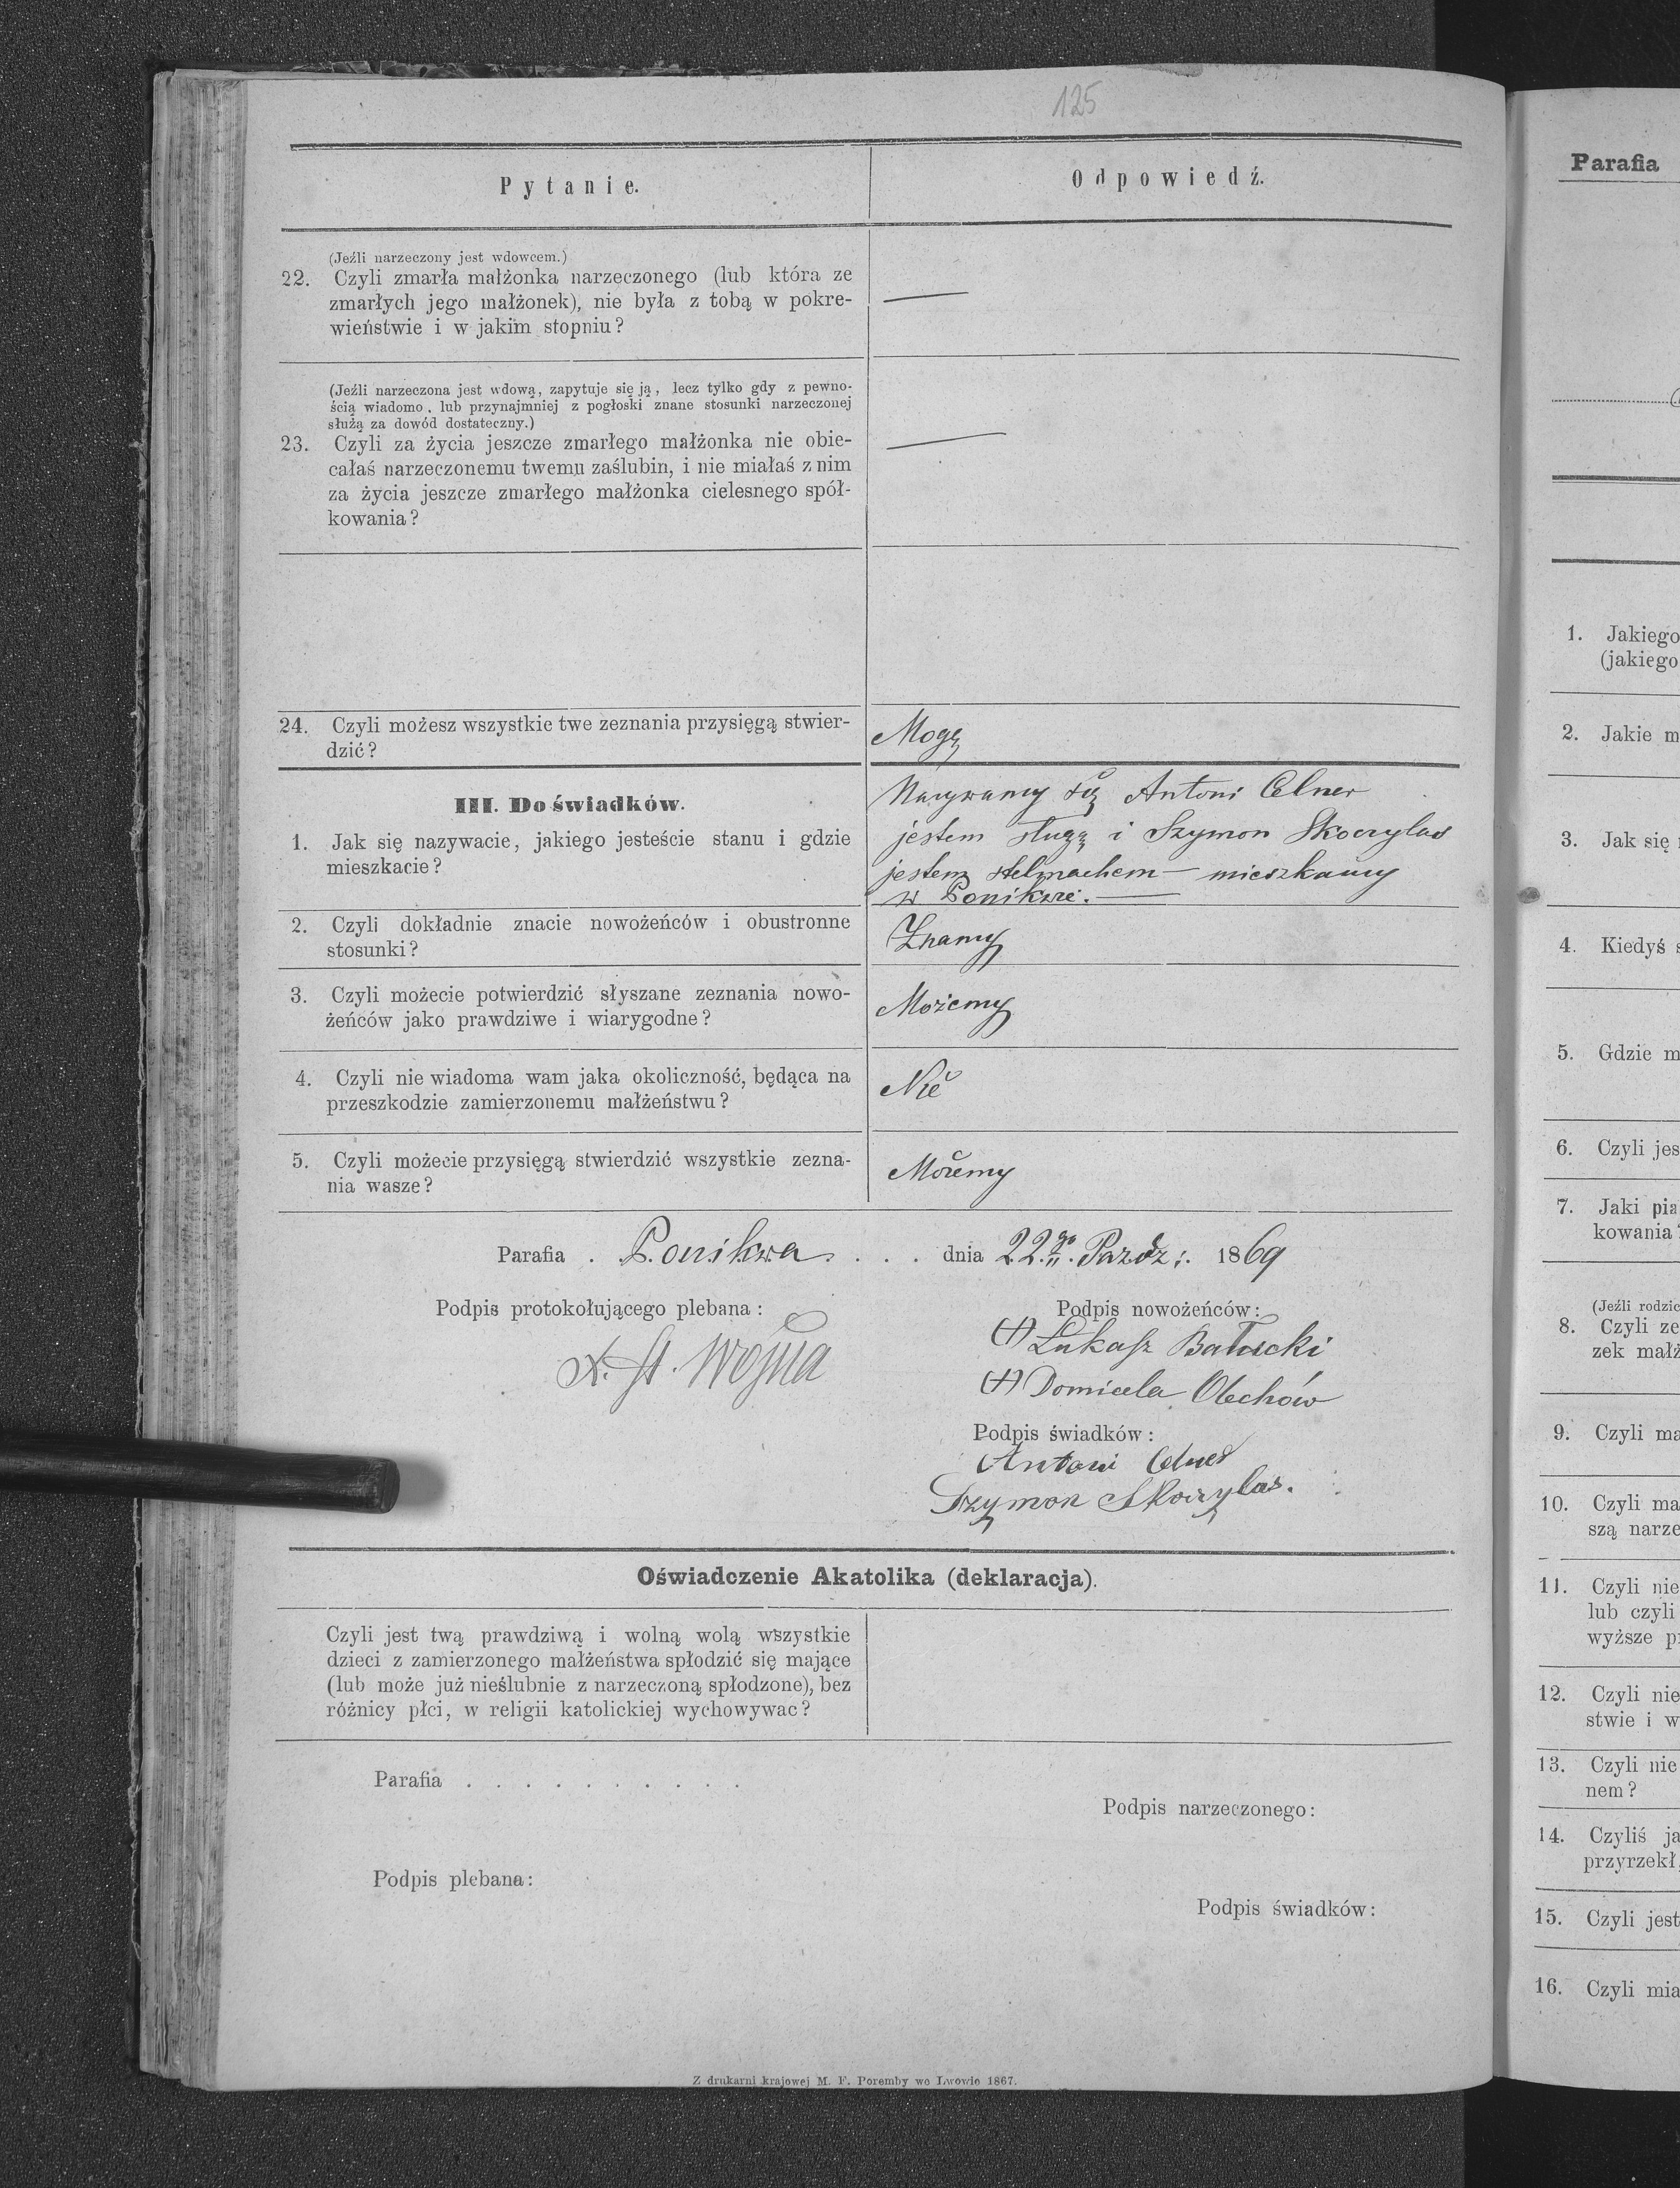 125
Pytanie.
Odpowiedź.
(Jeźli narzeczony jest wdowcem.)
22. Czyli zmarła małżonka narzeczonego (lub która ze
zmarłych jego małżonek), nie była z tobą w pokre-
wieństwie i w jakim stopniu?
—
(Jeźli narzeczona jest wdową, zapytuje się ją, lecz tylko gdy z pewno-
ścią wiadomo, lub przynajmniej z pogłoski znane stosunki narzeczonej
służą za dowód dostateczny.)
23. Czyli za życia jeszcze zmarłego małżonka nie obie-
całaś narzeczonemu twemu zaślubin, i nie miałaś z nim
za życia jeszcze zmarłego małżonka cielesnego spół-
kowania?
—
24. Czyli możesz wszystkie twe zeznania przysięgą stwier-
dzić?
Mogę
III. Do świadków.
1. Jak się nazywacie, jakiego jesteście stanu i gdzie
mieszkacie?
Nazywamy się Antoni Celner
jestem sługą i Szymon Skoczylas
jestem stelmachem — mieszkamy
w Ponikwie. —
2. Czyli dokładnie znacie nowożeńców i obustronne
stosunki?
Znamy
3. Czyli możecie potwierdzić słyszane zeznania nowo-
żeńców jako prawdziwe i wiarygodne?
Możemy
4. Czyli nie wiadoma wam jaka okoliczność, będąca na
przeszkodzie zamierzonemu małżeństwu?
Nie
5. Czyli możecie przysięgą stwierdzić wszystkie zezna-
nia wasze?
Możemy
Parafia . Ponikwa . . . dnia 22go Pazdz: 1869
Podpis protokołującego plebana:
X. St. Wojna
Podpis nowożeńców:
(+) Łukasz Bałucki
(+) Domicela Olechów
Podpis świadków:
Antoni Celner
Szymon Skoczylas.
Oświadczenie Akatolika (deklaracja).
Czyli jest twą prawdziwą i wolną wolą wszystkie
dzieci z zamierzonego małżeństwa spłodzić się mające
(lub może już nieślubnie z narzeczoną spłodzone), bez
różnicy płci, w religii katolickiej wychowywac?
Parafia . . . . . . . . . .
Podpis narzeczonego:
Podpis plebana:
Podpis świadków:
Z drukarni krajowej M. F. Poremby we Lwowie 1867.
Parafia
1. Jakiego
(jakiego
2. Jakie m
3. Jak się
4. Kiedyś s
5. Gdzie m
6. Czyli jes
7. Jaki pia
kowania?
(Jeźli rodzic
8. Czyli ze
zek małż
9. Czyli ma
10. Czyli ma
szą narze
11. Czyli nie
lub czyli
wyższe p
12. Czyli nie
stwie i w
13. Czyli nie
nem?
14. Czyliś ja
przyrzekł
15. Czyli jest
16. Czyli mia